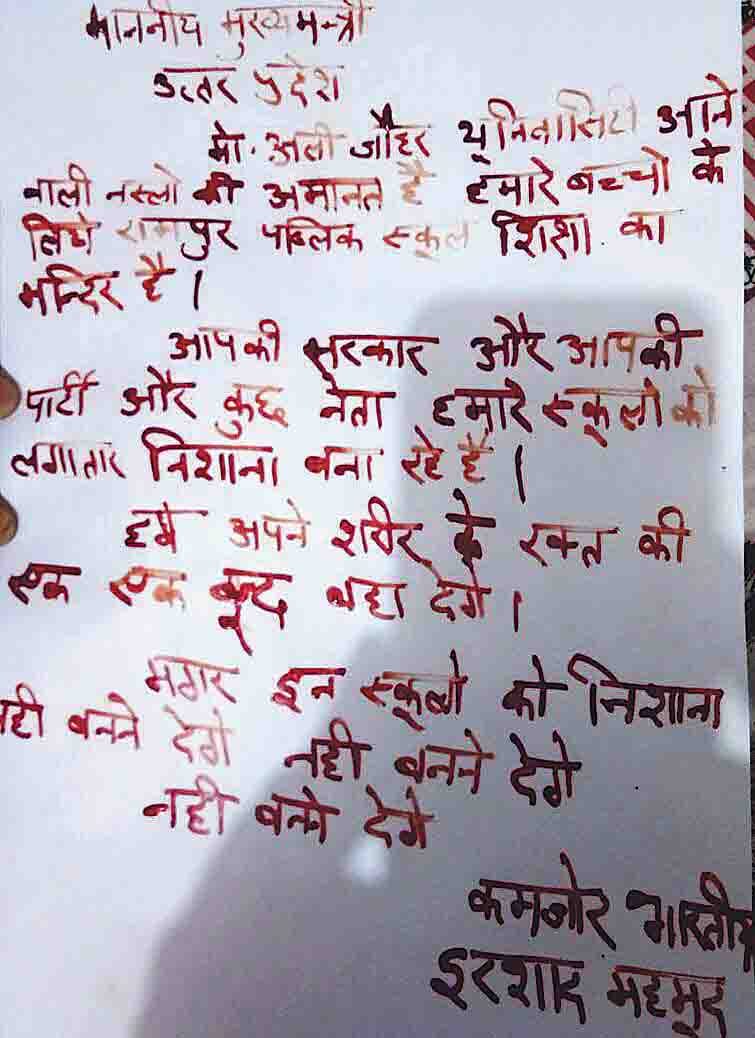 माननीय मुख्यमन्त्री
उत्तर प्रदेश
मो. अली जौहर यूनिवासिटी आने
वाली नस्लो की अमानत है हमारे बच्चो के
लिये रामपुर पब्लिक स्कूल शिक्षा का
मन्दिर है।
आपकी सरकार और आपकी
पार्टी और कुछ नेता हमारे स्कूलो को
लगातार निशाना बना रहे है।
हम अपने शरीर के रक्त की
एक एक बूद बहा देगे।
मगर इन स्कूलो को निशाना
नही बनने देगे नही बनने देगे
नही बनने देगे
कमजोर भारतीय
इरशाद महमूद